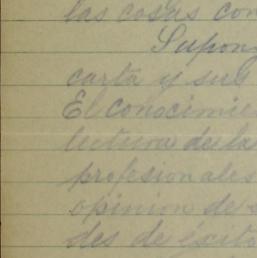 las cosas con
Supon
carta y sus
El conocimie
lectura de la
profesionales
opinion de s
des de éxito